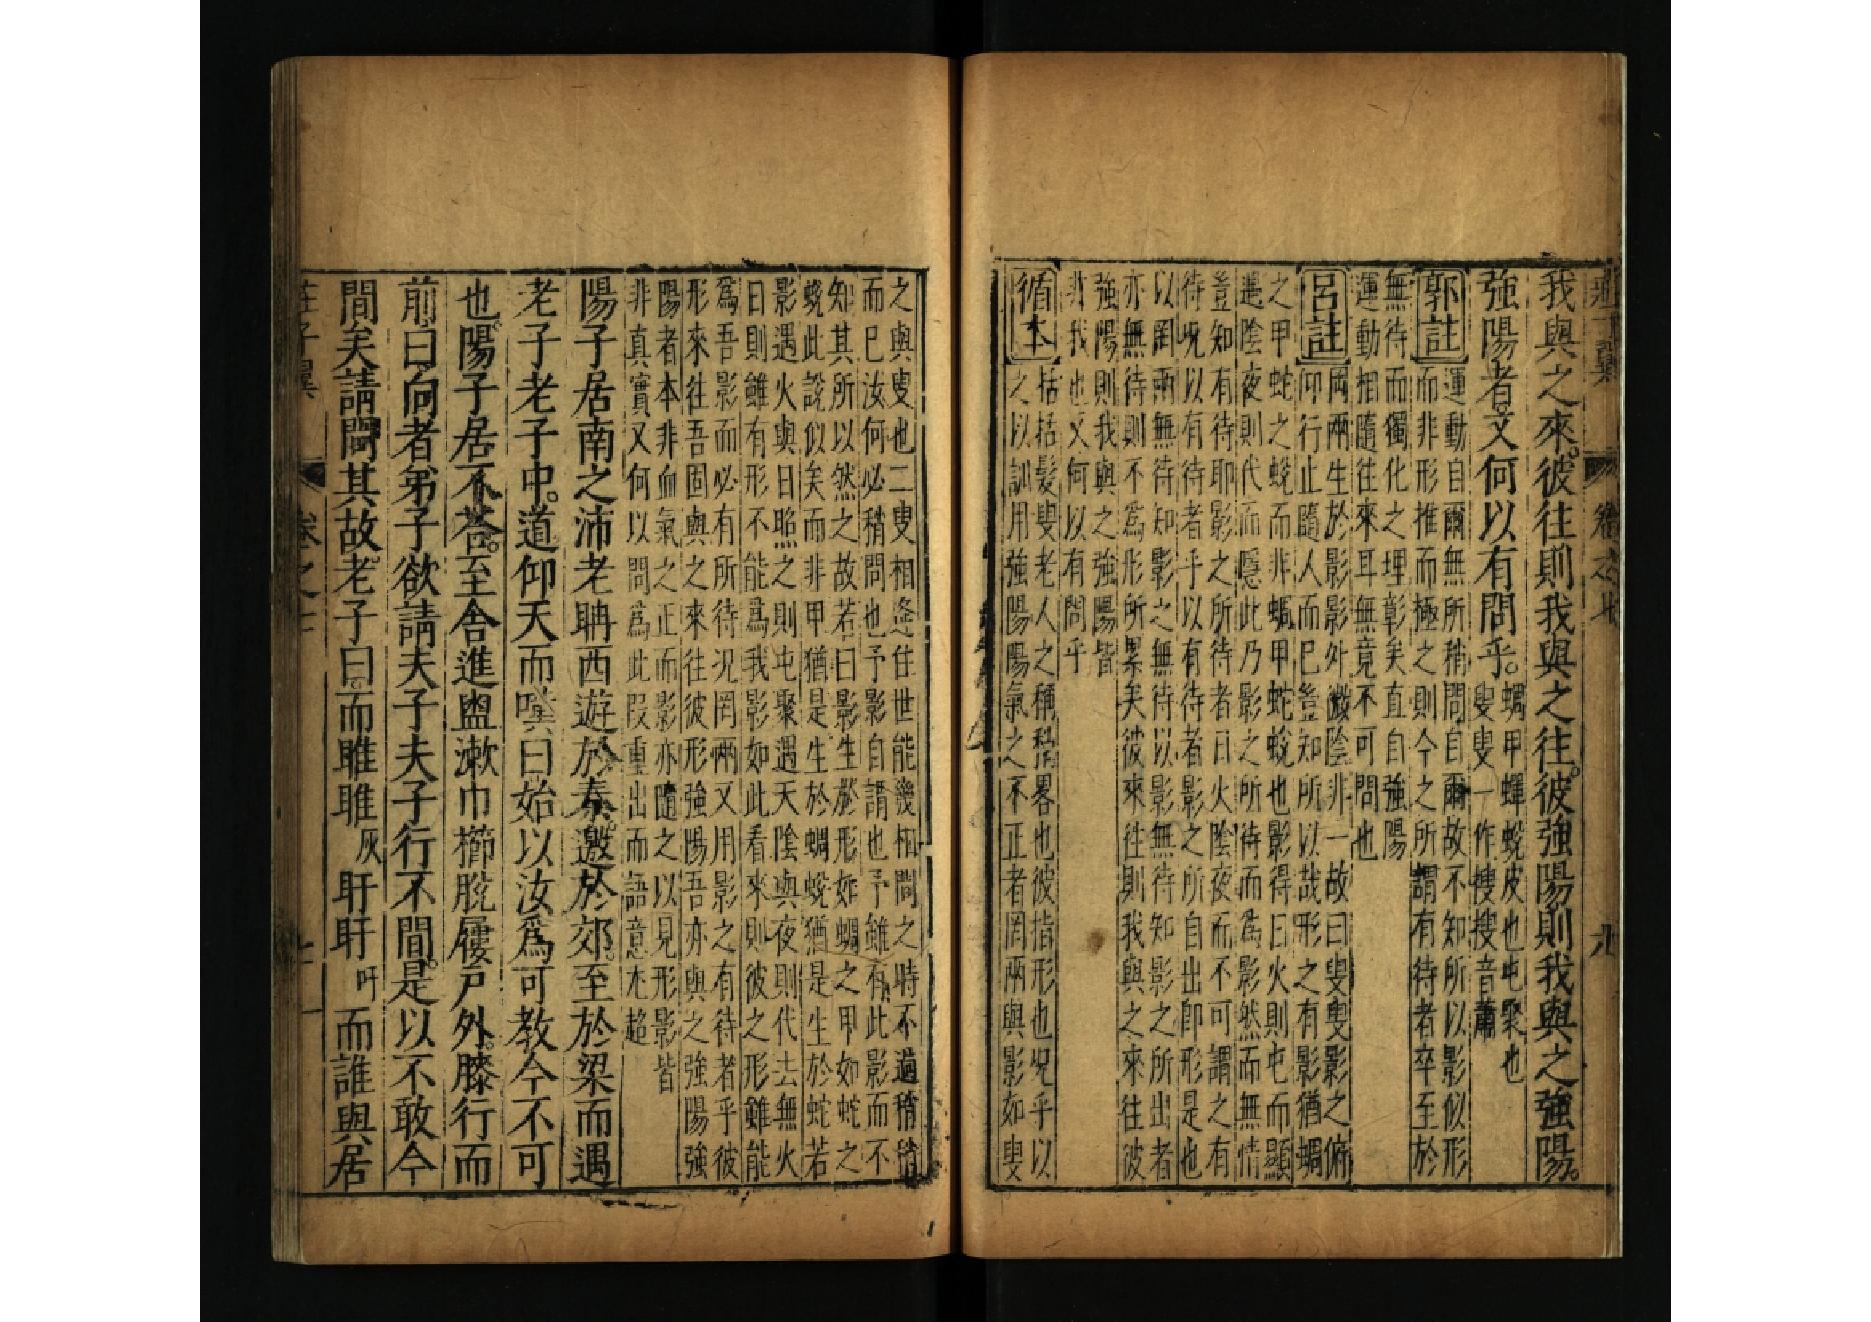 莊子翼 卷之七 九
我與之來。彼往則我與之往。彼強陽則我與之強陽。
強陽者又何以有問乎。
蜩甲蟬蛻皮也屯聚也
叟叟一作搜音蕭
郭註
運動自爾無所稍問自爾故不知所以影似形
而非形推而極之則今之所謂有待者卒至於
無待而獨化之理彰矣直自強陽
運動相隨往來耳無意不可問也
呂註
罔兩生於影影外微陰非一故曰叟叟影之俯
仰行止隨人而巳豈知所以哉形之有影猶蜩
之甲蛇之蛻而非蜩甲蛇蛻也影得日火則屯而顯
遇陰夜則代而隱此乃影之所待而為影然而無情
豈知有待耶影之所待者日火陰夜而不可謂之有
待况以有待者乎以有待者影之所自出卽形是也
以罔兩無待知影之無待以影無待知影之所出者
亦無待則不為形所累矣彼來往則我與之來往彼
強陽則我與之強陽皆
非我也又何以有問乎
循本
括括髮叟老人之稱稍畧也彼指形也况乎以
之以訓用強陽陽氣之不正者罔兩與影如叟
之與叟也二叟相逢住世能幾相問之時不過稍稍
而巳汝何必稍問也予影自謂也予雖有此影而不
知其所以然之故若曰影生於形如蜩之甲如蛇之
蛻此說似矣而非甲猶是生於蜩蛻猶是生於蛇若
影遇火與日照之則屯聚遇天陰與夜則代去無火
日則雖有形不能為我影如此看來則彼之形雖能
為吾影而必有所待况罔兩又用影之有待者乎彼
形來往吾固與之來往彼形強陽吾亦與之強陽強
陽者本非血氣之正而影亦隨之以見形影皆
非真實又何以問為此叚重出而語意尤超
陽子居南之沛老聃西遊於秦。邀於郊。至於梁而遇
老子老子中。道仰天而嘆曰始以汝為可教今不可
也。陽子居不荅。至舎進盥漱巾櫛脫屨戶外。膝行而
前曰向者弟子欲請夫子夫子行不間。是以不敢今
間矣請問其故老子曰。而睢睢灰盱盱吁而誰與居
莊子翼 卷之七